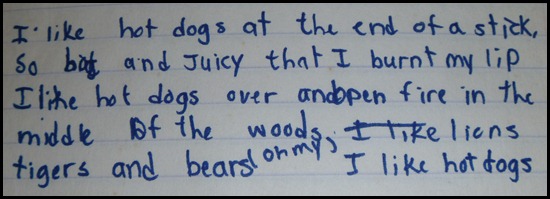 I like hot dogs at the end of a stick,
So big and Juicy that I burnt my lip
I like hot dogs over andopen fire in the
middle of the woods, I like lions
tigers and bears(on my) I like hot dogs